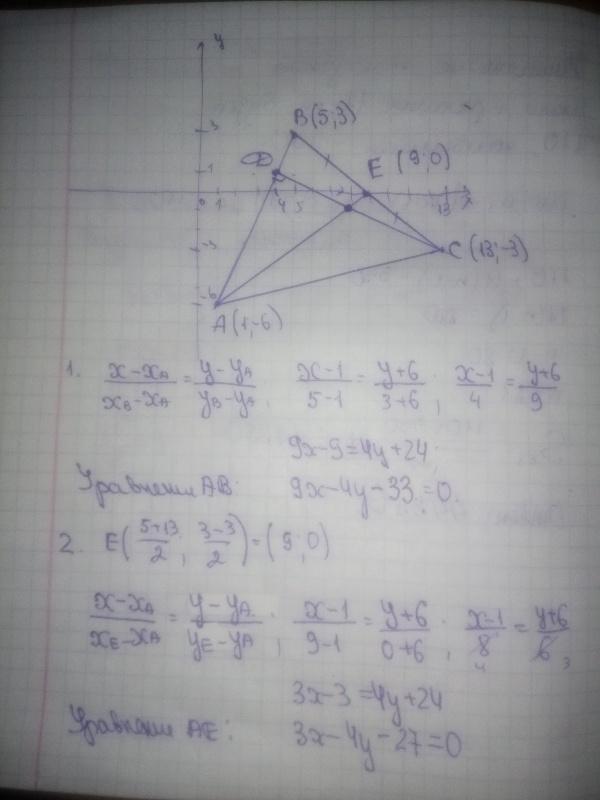 y
B(5;3)
3
D
E (9;0)
1
0 1 4 5 13 x
-3
C (13;-3)
-6
A(1;-6)
1. (x-xA)/(xB-xA) = (y-yA)/(yB-yA); (x-1)/(5-1) = (y+6)/(3+6); (x-1)/4 = (y+6)/9
9x-9=4y+24;
Уравнение AB: 9x-4y-33=0.
2. E((5+13)/2; (3-3)/2) = (9;0)
(x-xA)/(xE-xA) = (y-yA)/(yE-yA); (x-1)/(9-1) = (y+6)/(0+6); (x-1)/8 = (y+6)/6
4 3
3x-3=4y+24
Уравнение AE: 3x-4y-27=0